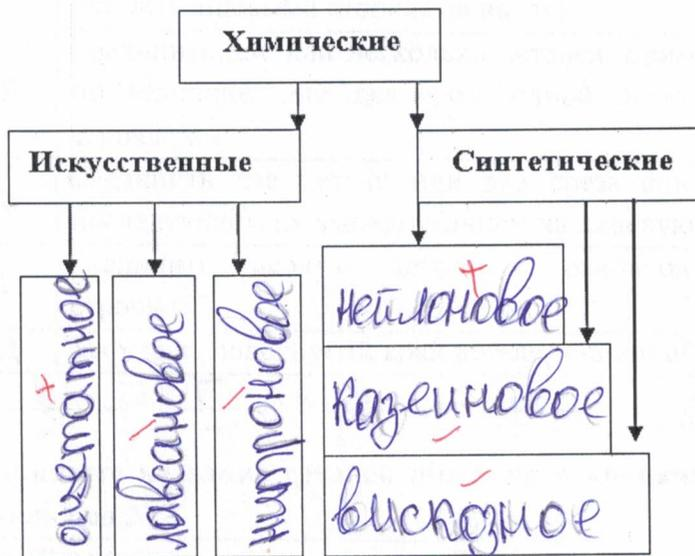 Химические
Искусственные
Синтетические
ацетатное
лавсановое
нитроновое
нейлоновое
казеиновое
вискозное